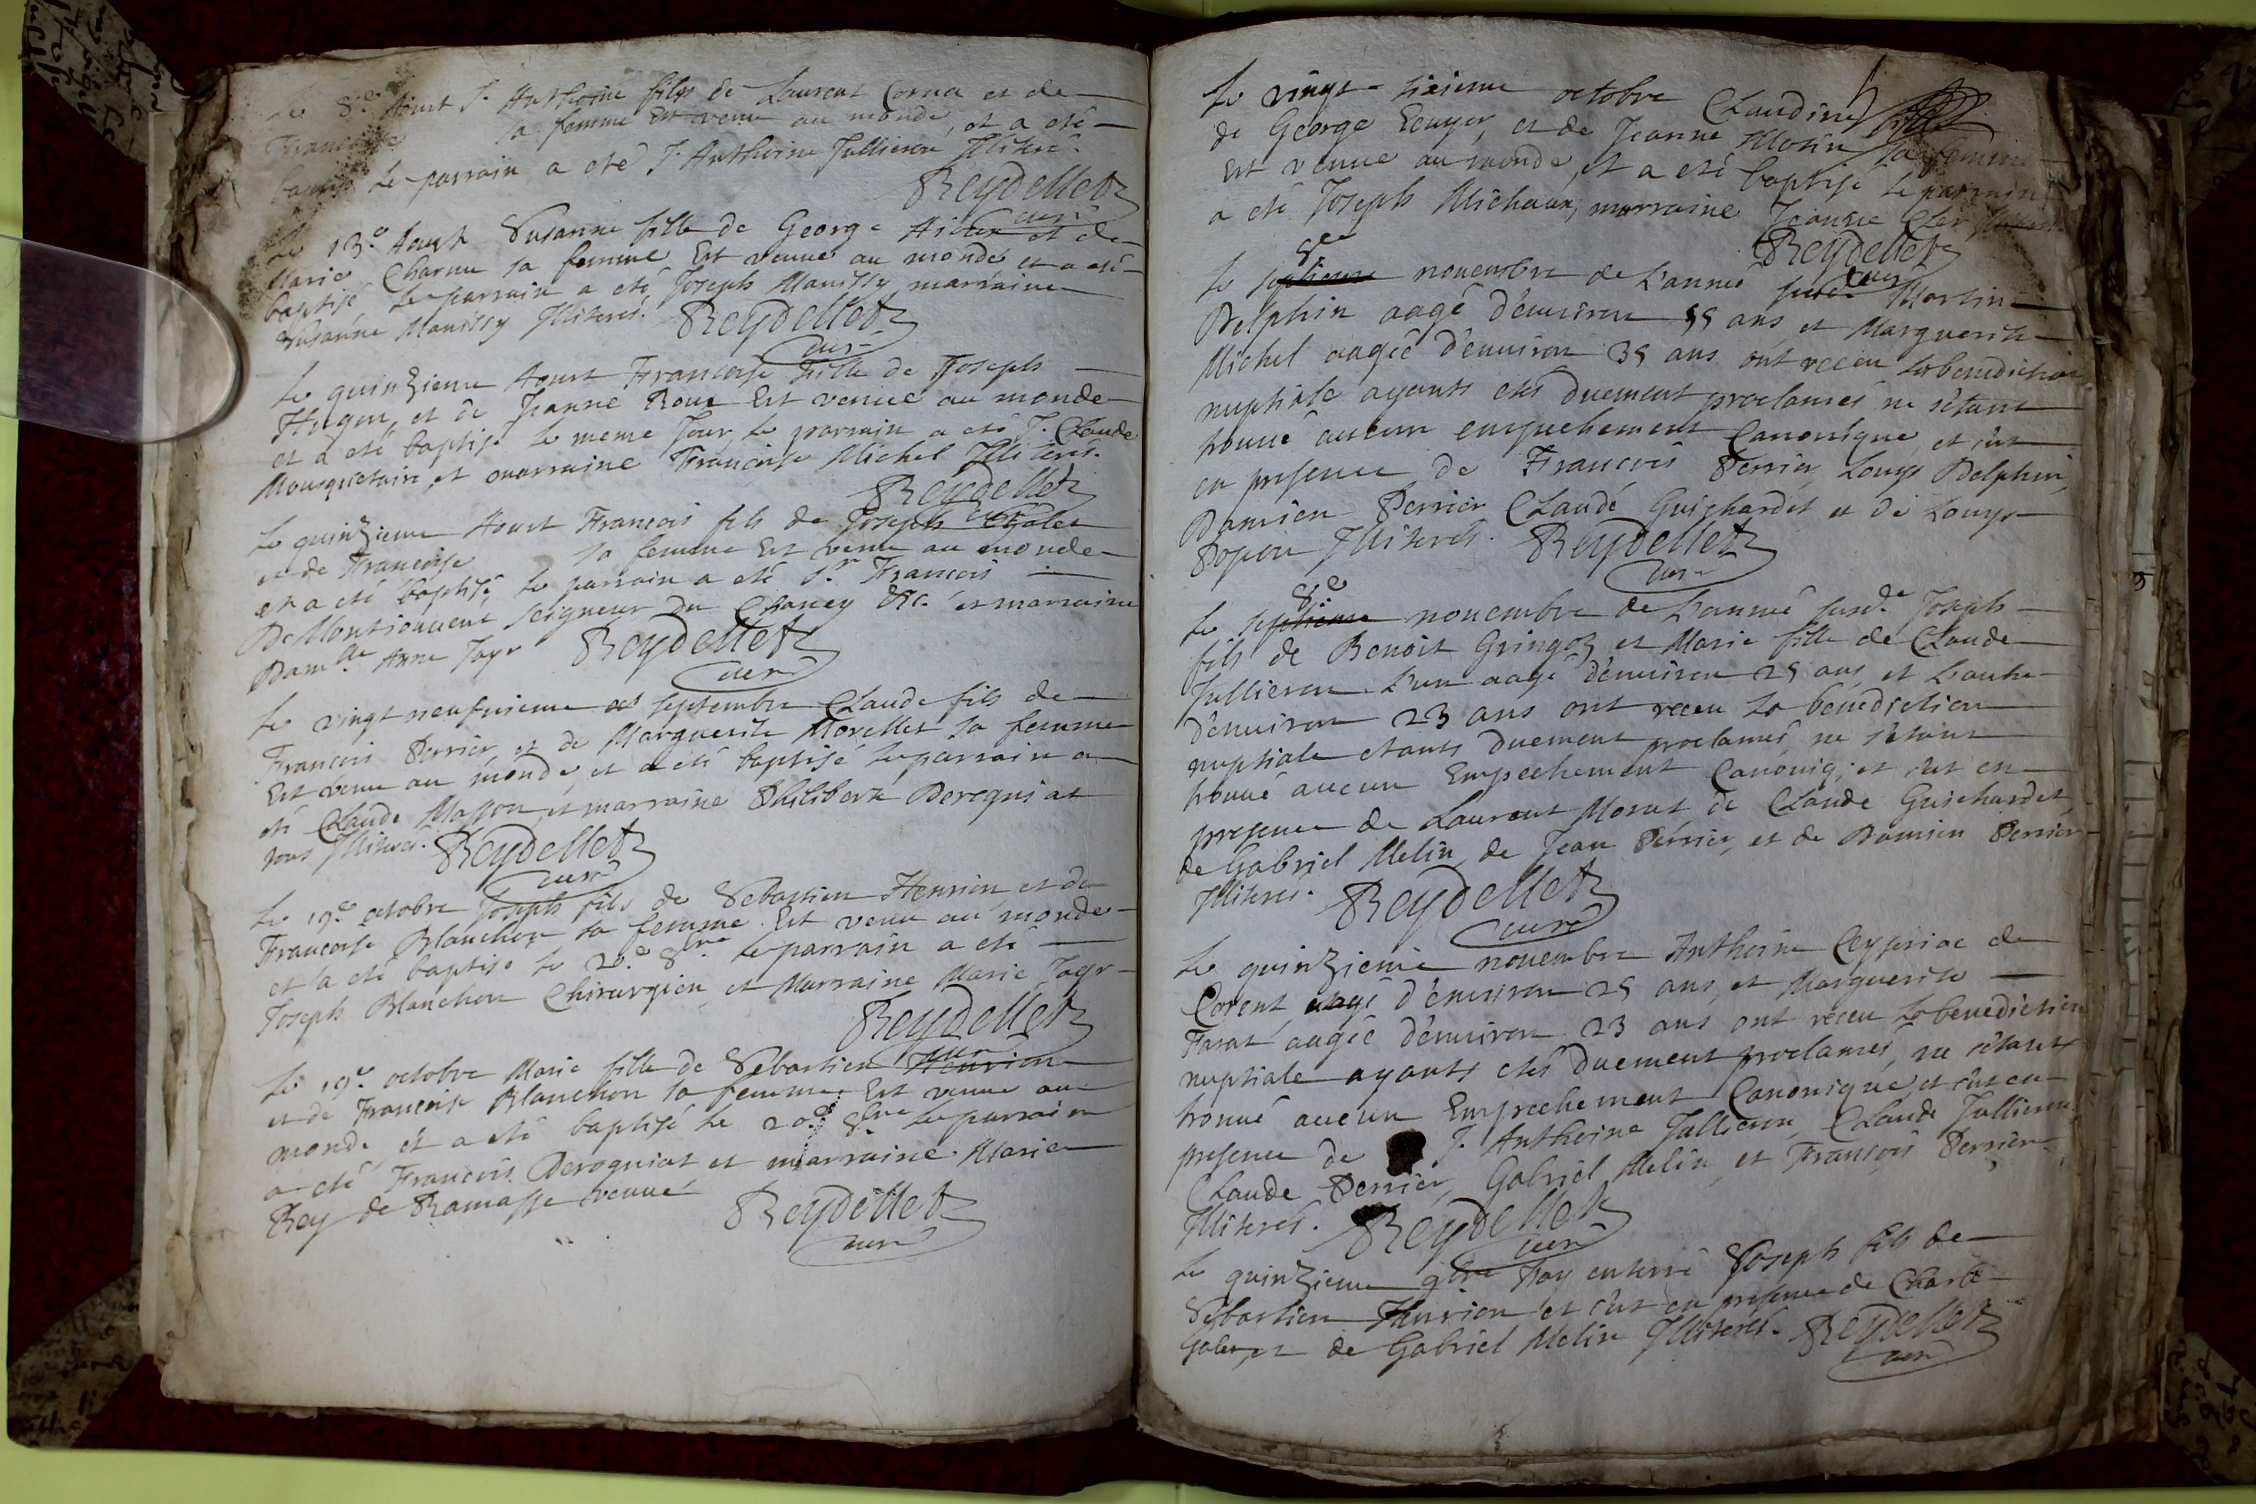 Le 8.e Aoust J. Anthoine fils de Laurent Cornu et de
Françoise sa femme Est venu au monde, et a eté
baptisé le parrain a eté J. Anthoine Jullieron Jlliteré.
Reydellet
curé
Le 13.e Aoust Susanne fille de George et de
Marie Charnu sa femme Est venue au monde et a eté
baptisé le parrain a eté Joseph Manissy, marraine
Susanne Manissy Jlliterés. Reydellet
curé
Le quinzieme Aoust Francoise fille de Joseph
Hugon, et de Jeanne Roux Est venue au monde
et a eté baptisé le meme Jour, le parrain a eté J. Claude
Mousquetaire, et marraine Francoise Michel Jlliterés.
Reydellet
curé
Le quinzieme Aoust Francois fils de Joseph Galet
et de Francoise sa femme Est venu au monde
et a eté baptisé, le parrain a eté S.r Francois
De Montjouvent seigneur du Chaney &c. et marraine
Dam.lle Anne Tayr Reydellet
curé
Le vingt neufvieme septembre Claude fils de
Francois Perrier, et de Marguerite Morellet sa femme
Est venu au monde, et a eté baptisé le parrain a
eté Claude Masson, et marraine Philiberte Derognat
tous Jlliterés. Reydellet
curé
Le 19.e octobre Joseph fils de Sebastien Henrion, et de
Francoise Blanchon sa femme Est venu au monde
et a eté baptisé le 20.e 8bre le parrain a eté
Joseph Blanchon Chirurgien, et Marraine Marie Tayr
Reydellet
curé
Le 19.e octobre Marie fille de Sebastien Henrion
et de Francoise Blanchon sa femme, Est venue au
monde, et a eté baptisé le 20.e 8bre le parrain
a eté Francois Derogniat et marraine Marie
Rey de Ramasse veuve Reydellet
curé
Le vingt-sixieme octobre Claudine fille
de George Ecuyer, et de Jeanne Morin sa femme
Est venue au monde, et a eté baptisé le parrain
a eté Joseph Michaux, marraine Jeanne
Reydellet
curé
8.e
Le septieme novembre de L'année susd.e Martin
Delphin aagé d'environ 55 ans, et Marguerite
Michel aagée d'environ 35 ans ont receu la benediction
nuptiale ayants etés duement proclamés ne s'étant
trouué aucun empechement Canonique, et c'est
en presence de Francois Perrier, Louys Delphin,
Damien Perrier Claude Guichardet et de Louys
Popon Jlliterés. Reydellet
curé
8.e
Le septieme novembre de L'année susd.e Joseph
fils de Benoit Gringoz et Marie fille de Claude
Jullieron L'un aagé d'environ 25 ans, et L'autre
d'environ 23 ans ont receu la benediction
nuptiale etants duement proclamés, ne s'étant
trouué aucun Empechement Canoniq; et c'est en
presence de Laurent Morat de Claude Guichardet
de Gabriel Melin, de Jean Perrier, et de Damien Perrier
Jlliterés. Reydellet
curé
Le quinzieme novembre Anthoine Cyprian de
Corent aagé d'environ 25 ans, et Marguerite
Farat aagée d'environ 23 ans ont receu la benediction
nuptiale ayants etés duement proclamés, ne s'étant
trouué aucun Empechement Canonique, et c'est en
presence de J. Anthoine Jullieron, Claude Jullieron,
Claude Perrier, Gabriel Melin, et Francois Perrier
Jlliterés. Reydellet
curé
Le quinzieme 9bre J'ay enterré Joseph fils de
Sebastien Henrion et c'est en presence de Charle
Galet, et de Gabriel Melin Jlliterés. Reydellet
curé